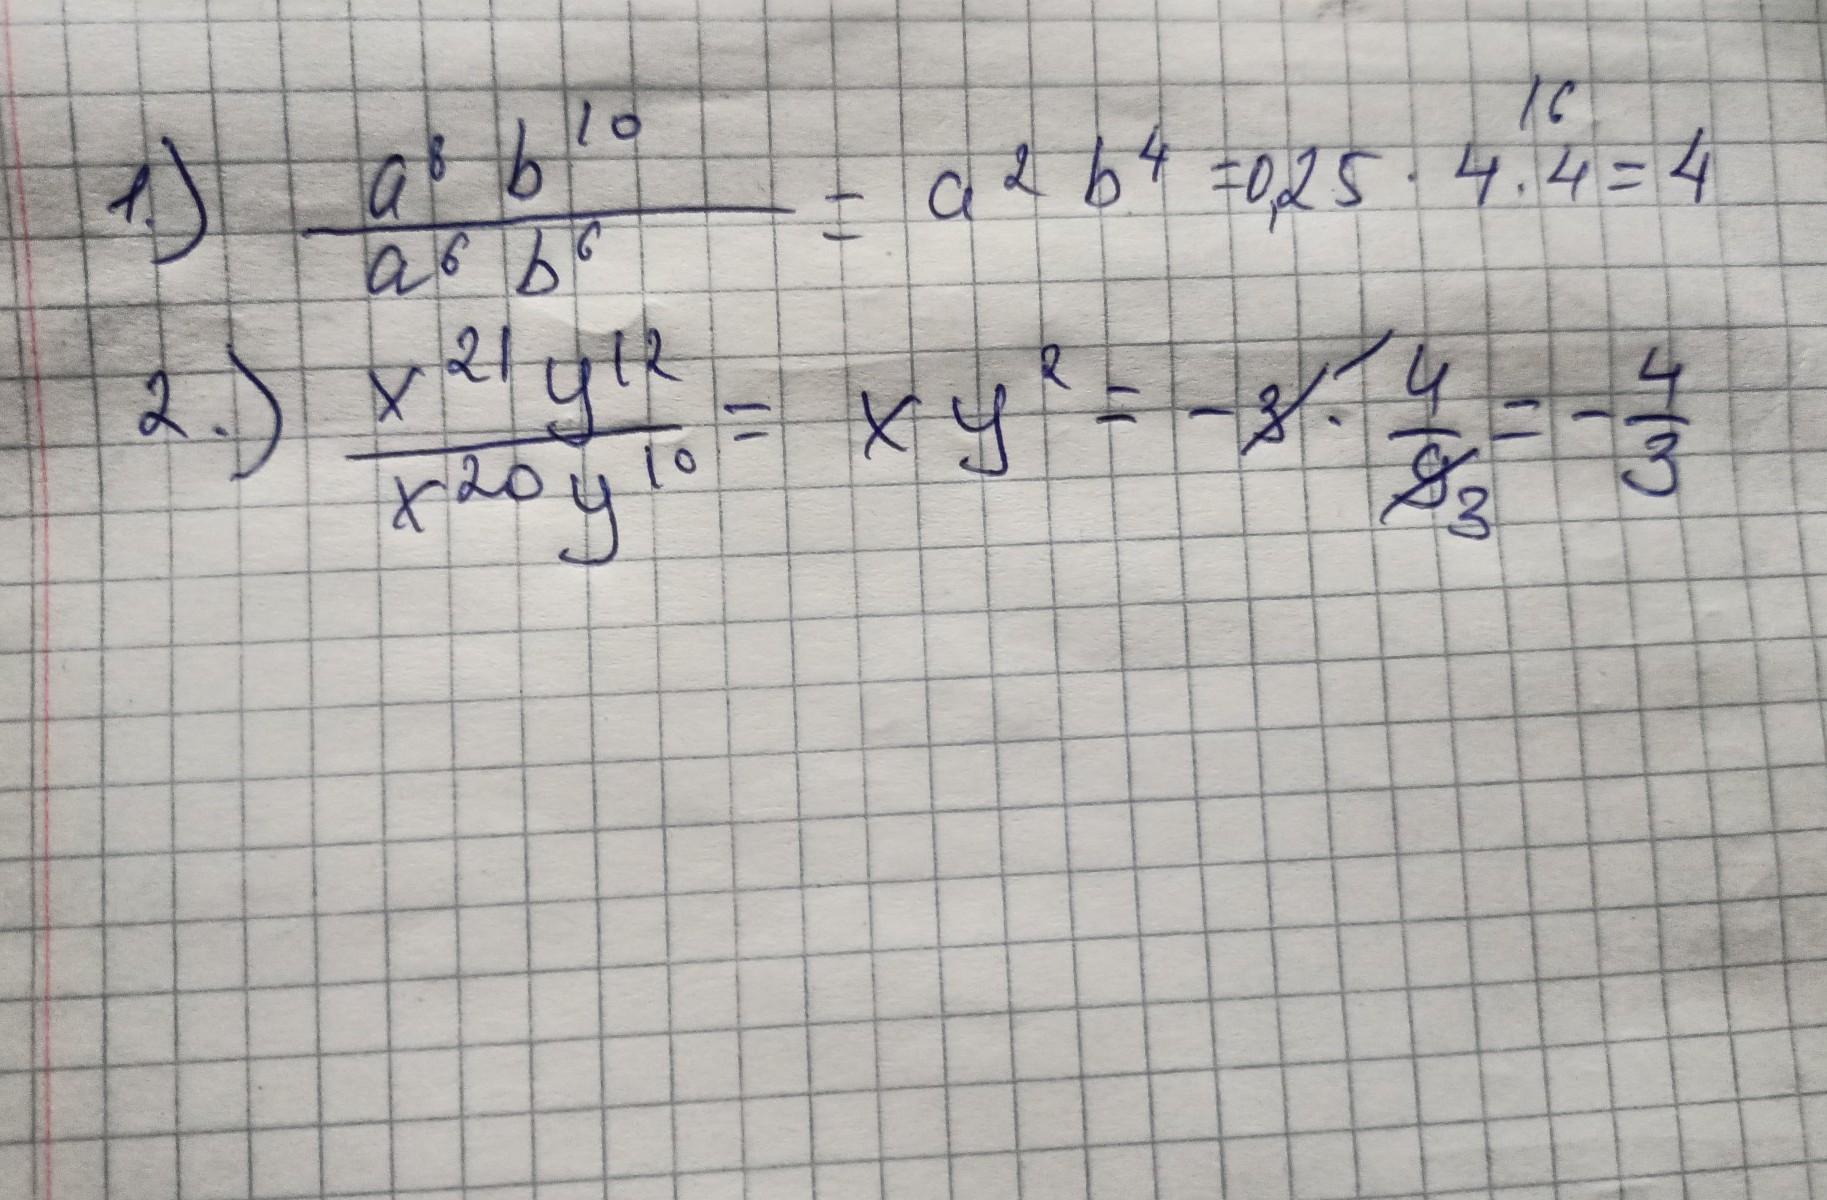 1.) a⁸ b¹⁰ / a⁶ b⁶ = a² b⁴ = 0,25 · 4 · 4 = 4 16
2.) x²¹ y¹² / x²⁰ y¹⁰ = x y² = - 3 · 4 / 9 3 = - 4 / 3